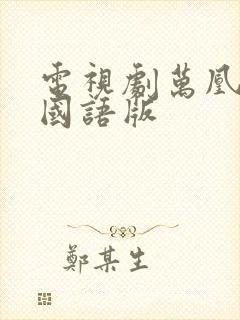 電視劇萬凰
國語版
鄭某生